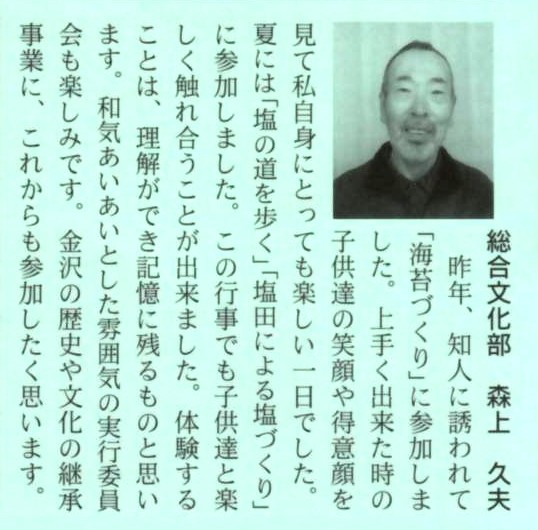 総合文化部　森上　久夫
　昨年、知人に誘われて
「海苔づくり」に参加しま
した。上手く出来た時の
子供達の笑顔や得意顔を
見て私自身にとっても楽しい一日でした。
夏には「塩の道を歩く」「塩田による塩づくり」
に参加しました。この行事でも子供達と楽
しく触れ合うことが出来ました。体験する
ことは、理解ができ記憶に残るものと思い
ます。和気あいあいとした雰囲気の実行委員
会も楽しみです。金沢の歴史や文化の継承
事業に、これからも参加したく思います。